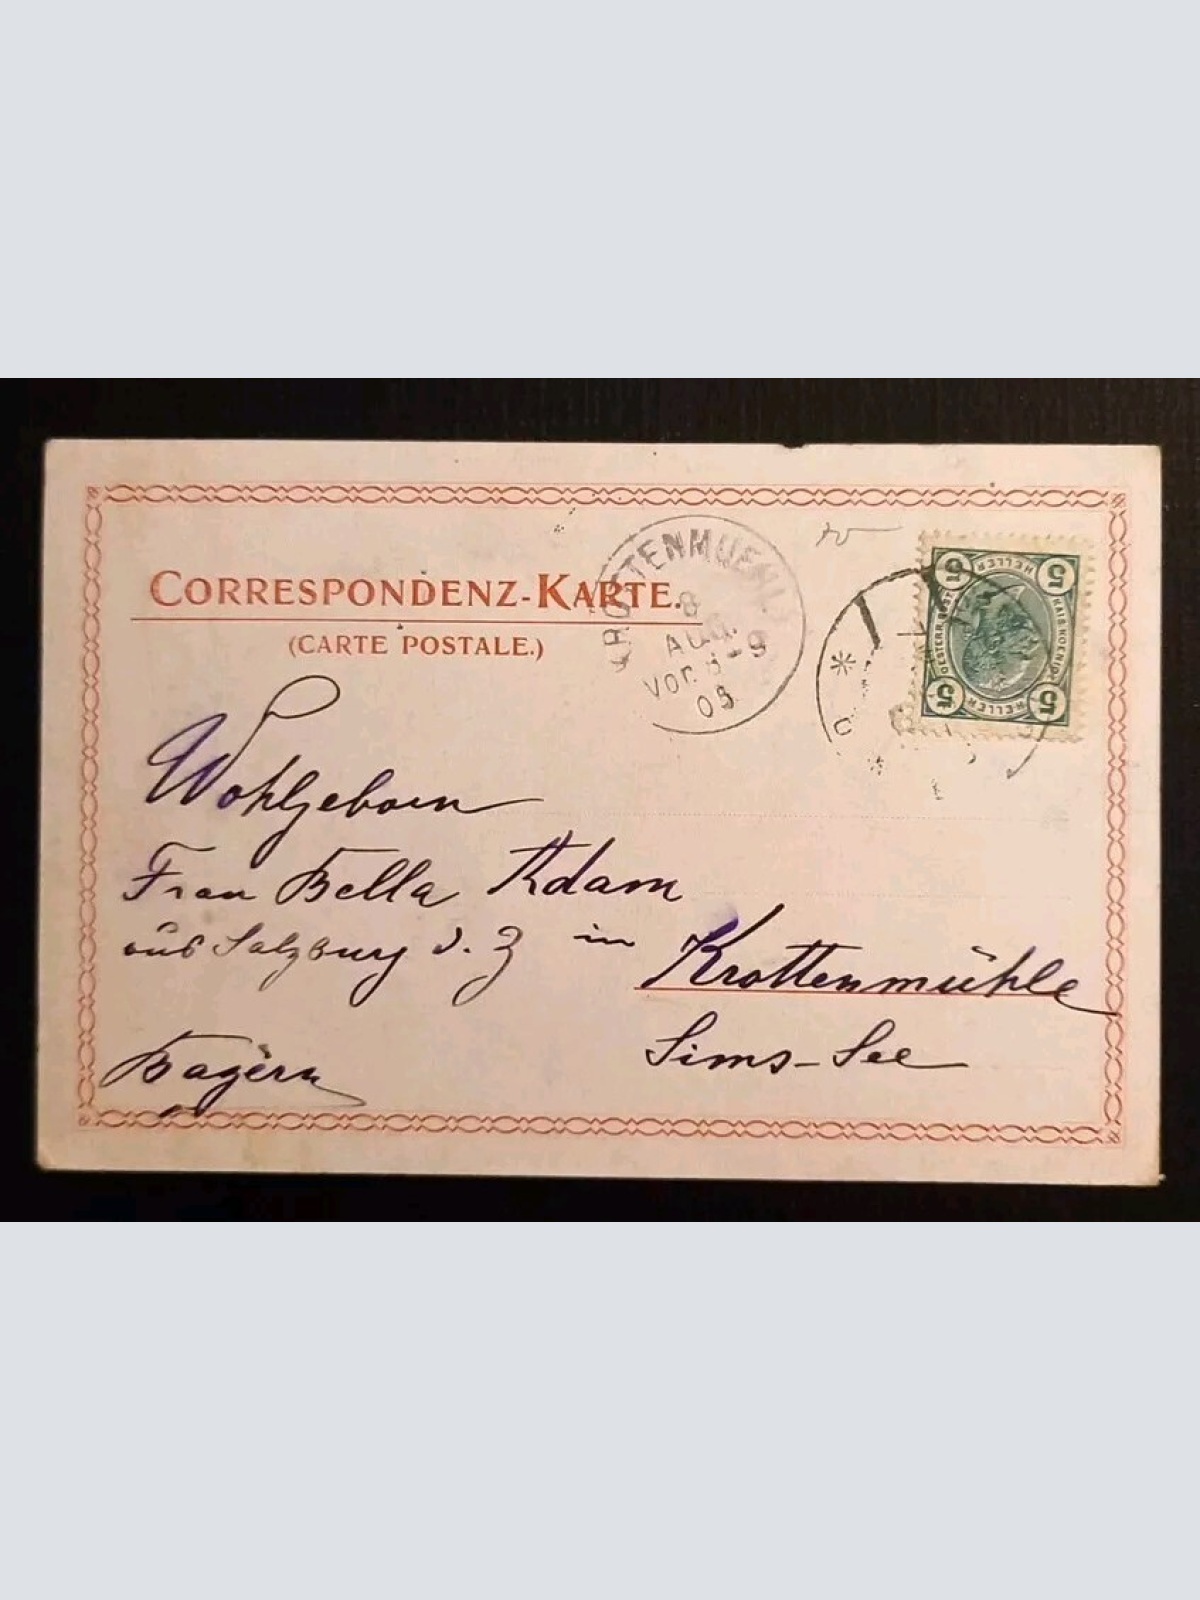 CORRESPONDENZ-KARTE.
(CARTE POSTALE.)
KROTTENMUEHL
8
AUG.
Vor. 8-9
05
5 HELLER 5
OESTERR. POST
KAIS. KOENIGL.
5 HELLER 5
Wohlgeborn
Frau Bella Adam
aus Salzburg d. Z in Krottenmühle
Sims-See
Bayern